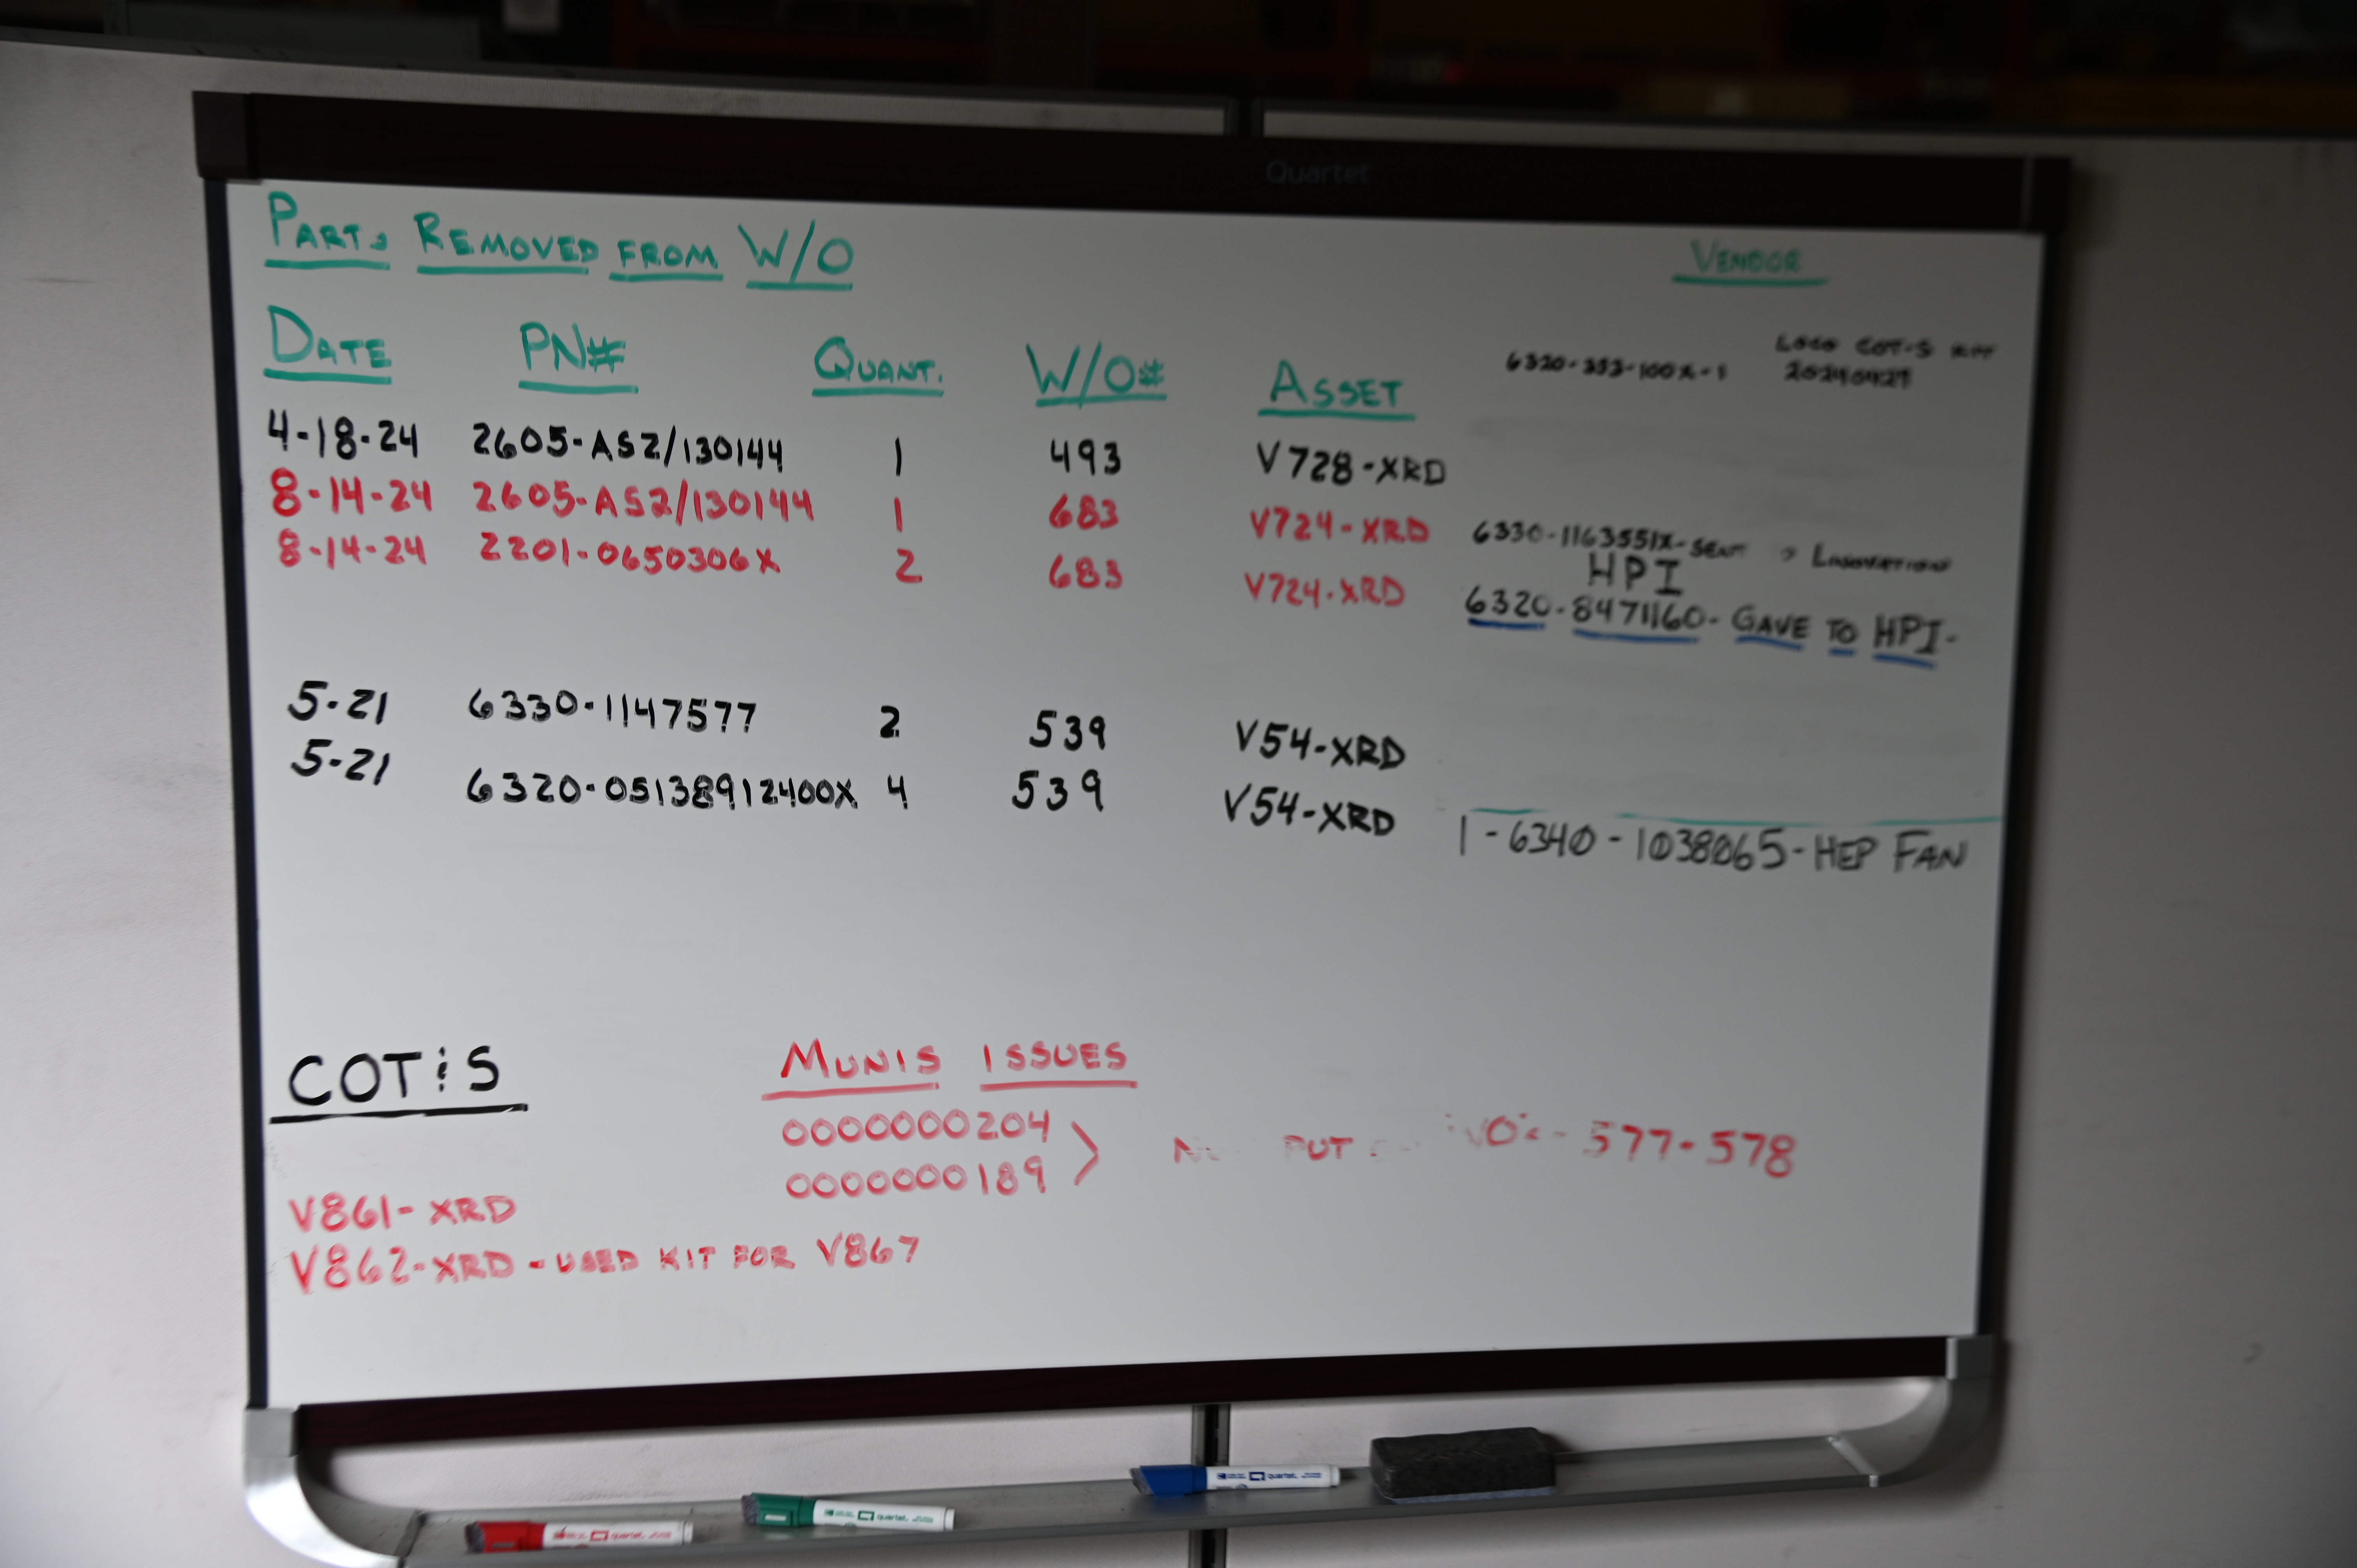 Quartet
PARTS REMOVED FROM W/O
VENDOR
DATE PN# QUANT. W/O# ASSET
LOCO COT&S KIT
6320-353-100X-1 20240429
4-18-24 2605-AS2/130144 1 493 V728-XRD
8-14-24 2605-AS2/130144 1 683 V724-XRD
8-14-24 2201-0650306X 2 683 V724-XRD
6330-1163551X-SENT
HPI
6320-8471160- GAVE TO HPI-
5-21 6330-1147577 2 539 V54-XRD
5-21 6320-05138912400X 4 539 V54-XRD
1-6340-1038065-HEP FAN
COT&S
MUNIS ISSUES
0000000204
0000000189
PUT 577-578
V861-XRD
V862-XRD - USED KIT FOR V867
quartet
quartet
quartet